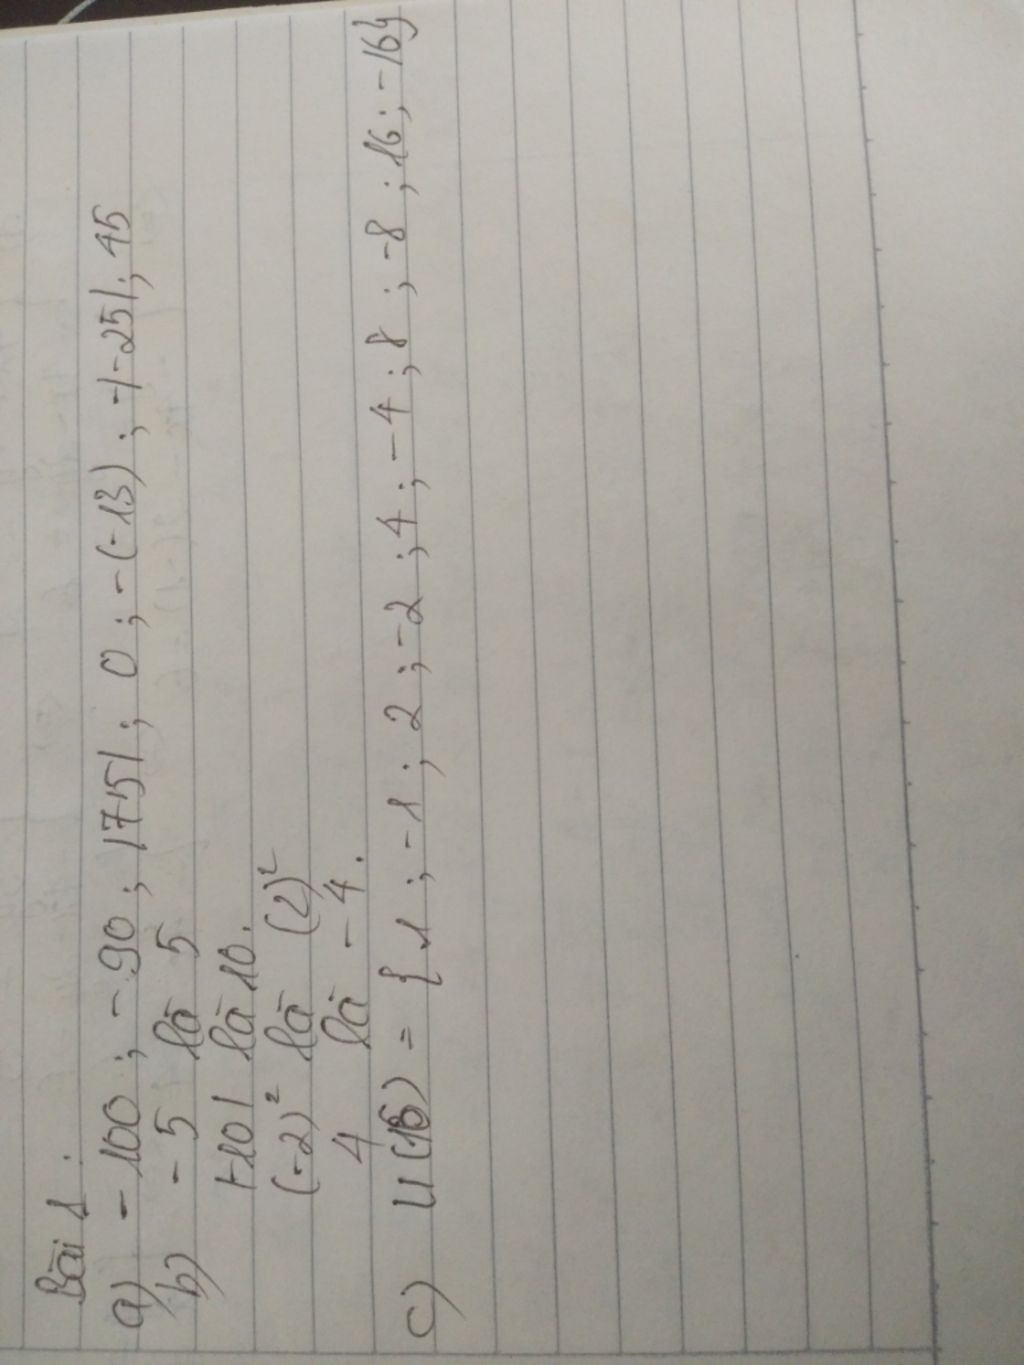 Bài 1.
a) -100 ; -90 ; |75| ; 0 ; -(-13) ; -|-25| ; 45
b) -5 là 5
|-10| là 10.
(-2)² là (2)²
4 là -4.
c) Ư(16) = { 1 ; -1 ; 2 ; -2 ; 4 ; -4 ; 8 ; -8 ; 16 ; -16}